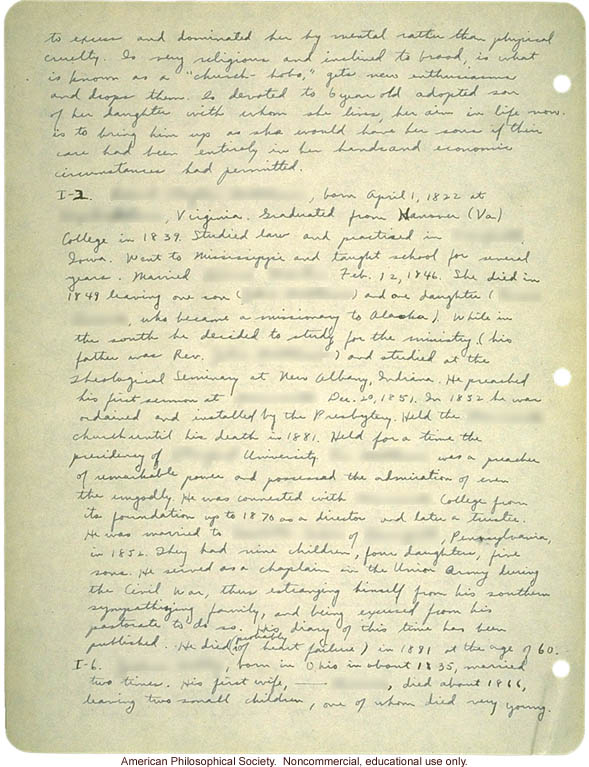 to excess and dominated her by mental rather than physical
cruelty. Is very religious and inclined to brood, is what
is known as a "church-hobo," gets new enthusiasms
and drops them. Is devoted to 6 year old adopted son
of her daughter with whom she lives, her aim in life now
is to bring him up as she would have her sons if their
care had been entirely in her hands and economic
circumstances had permitted.
I-2. , born April 1, 1822 at
, Virginia. Graduated from Hanover (Va)
College in 1839. Studied law and practised in
Iowa. Went to Mississippi and taught school for several
years. Married Feb. 12, 1846. She died in
1849 leaving one son ( ) and one daughter (
, who became a missionary to Alaska). While in
the south he decided to study for the ministry (his
father was Rev. ) and studied at the
Theological Seminary at New Albany, Indiana. He preached
his first sermon at Dec. 20, 1851. In 1852 he was
ordained and installed by the Presbytery. Held the
church until his death in 1881. Held for a time the
presidency of University. was a preacher
of remarkable power and possessed the admiration of even
the ungodly. He was connected with College from
its foundation up to 1870 as a director and later a trustee.
He was married to of , Pennsylvania,
in 1852. They had nine children, four daughters, five
sons. He served as a chaplain in the Union Army during
the Civil War, thus estranging himself from his southern
sympathizing family, and being excused from his
pastorate to do so. His diary of this time has been
published. He died (probably of heart failure) in 1881 at the age of 60.
I-6. , born in Ohio in about 1835, married
two times. His first wife, —— , died about 1866,
leaving two small children, one of whom died very young.
American Philosophical Society. Noncommercial, educational use only.